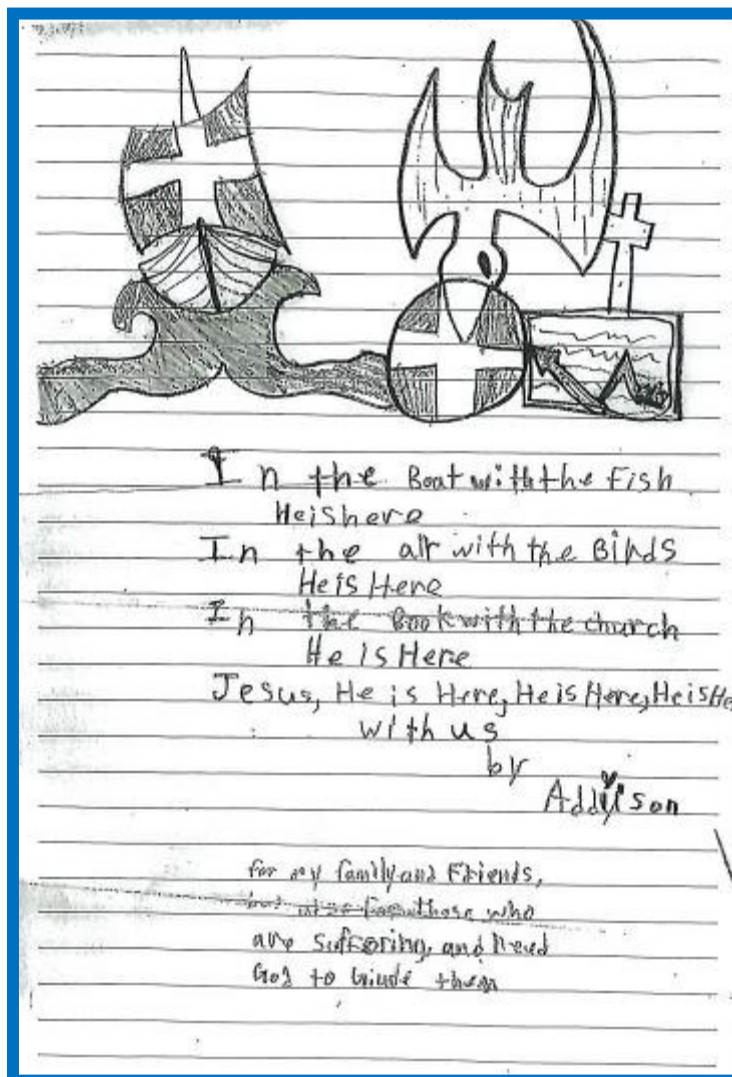 In the Boat with the Fish
He is here
In the air with the Birds
He is Here
In the Book with the church
He is Here
Jesus, He is Here, He is Here, He is He
with us
by
Addyson
for my family and Friends,
but also for those who
are suffering, and Need
God to Giude them